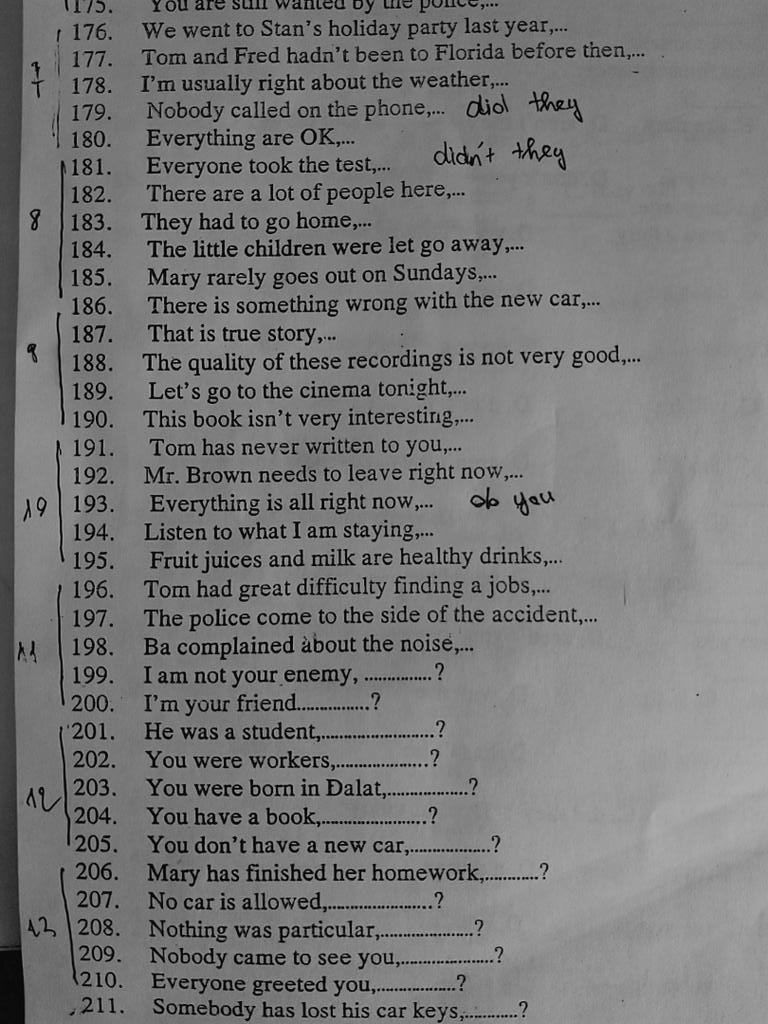 175. You are still wanted by the police,...
176. We went to Stan's holiday party last year,...
177. Tom and Fred hadn't been to Florida before then,...
7
178. I'm usually right about the weather,...
179. Nobody called on the phone,... did they
180. Everything are OK,...
181. Everyone took the test,... didn't they
182. There are a lot of people here,...
8 183. They had to go home,...
184. The little children were let go away,...
185. Mary rarely goes out on Sundays,...
186. There is something wrong with the new car,...
187. That is true story,...
9 188. The quality of these recordings is not very good,...
189. Let's go to the cinema tonight,...
190. This book isn't very interesting,...
191. Tom has never written to you,...
192. Mr. Brown needs to leave right now,...
10 193. Everything is all right now,... do you
194. Listen to what I am staying,...
195. Fruit juices and milk are healthy drinks,...
196. Tom had great difficulty finding a jobs,...
197. The police come to the side of the accident,...
11 198. Ba complained about the noise,...
199. I am not your enemy, ...............?
200. I'm your friend...............?
201. He was a student,........................?
202. You were workers,....................?
12 203. You were born in Đalat,..................?
204. You have a book,.......................?
205. You don't have a new car,.................?
206. Mary has finished her homework,............?
207. No car is allowed,.......................?
13 208. Nothing was particular,....................?
209. Nobody came to see you,....................?
210. Everyone greeted you,.................?
211. Somebody has lost his car keys,............?